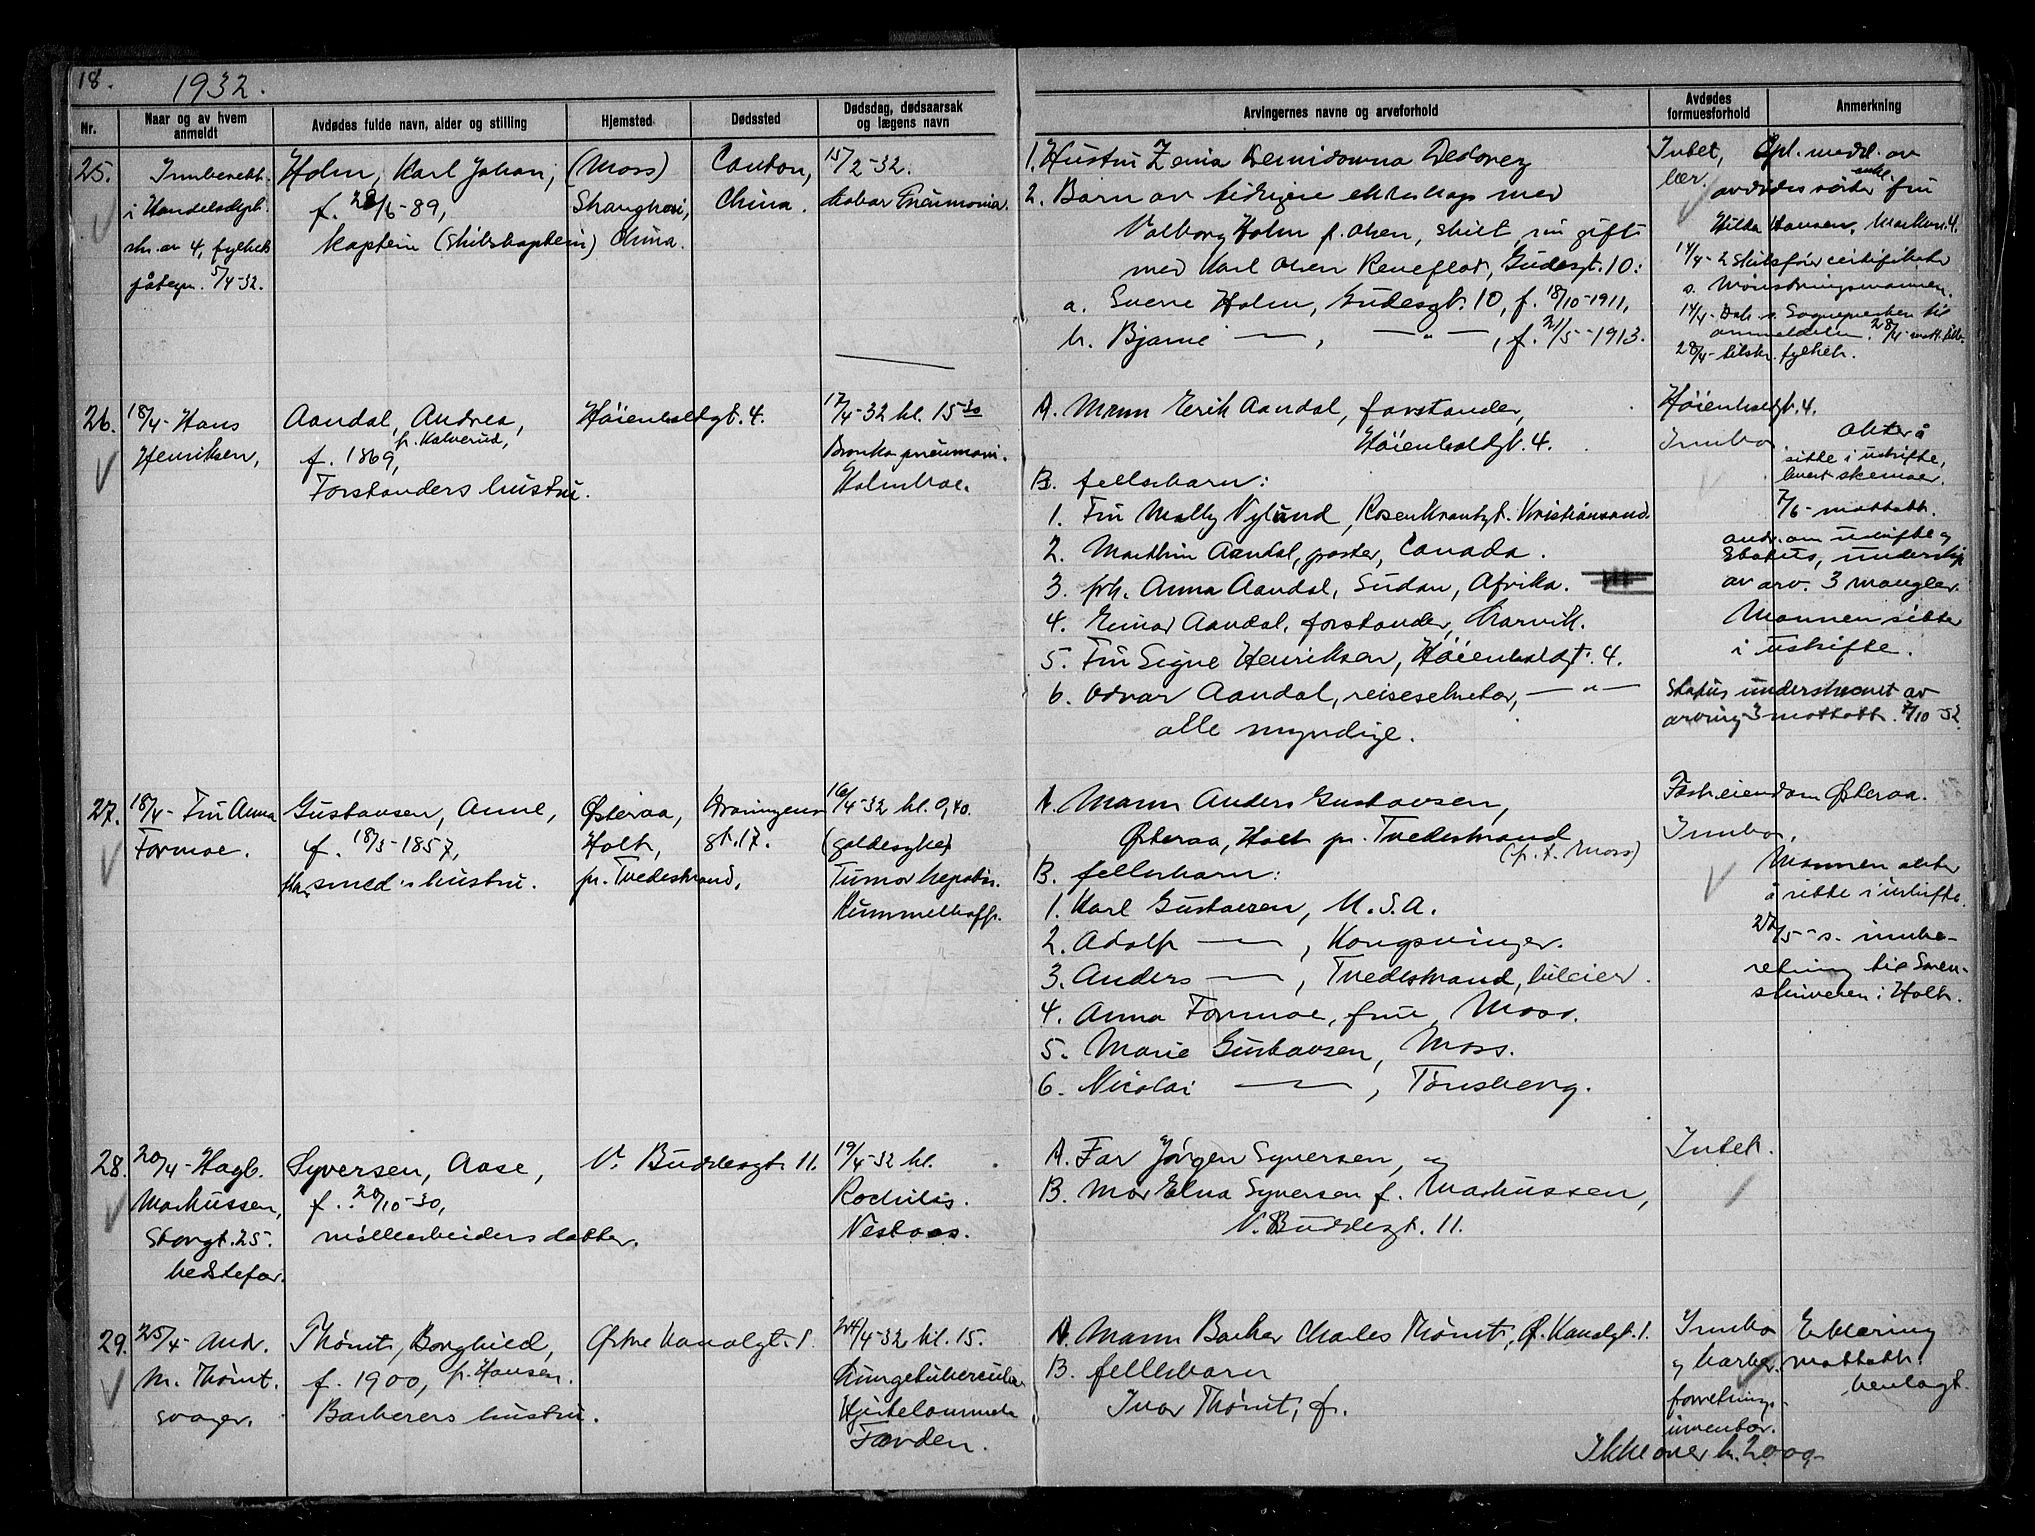 18.
1932.
Nr.
Naar og av hvem anmeldt
Avdødes fulde navn, alder og stilling
Hjemsted
Dødssted
Dødsdag, dødsaarsak og lægens navn
Arvingernes navne og arveforhold
Avdødes formuesforhold
Anmerkning
25.
Innberetn.
i Handelsdept.
skr. av 4, fylkets
påtegn. 5/4-32.
Holm, Karl Johan,
f. 28/6-89,
kaptein (skibskaptein)
(Moss)
Shanghai,
China.
Canton,
China.
15/2-32.
Lobar Pneumonia.
1. Hustru Zenia Demidowna Dedovez
2. Barn av tidligere ekteskap med
Valborg Holm f. Olsen, skilt, nu gift
med Karl Olsen Reneflot, Gudesgt. 10:
a. Sverre Holm, Gudesgt. 10, f. 18/10-1911,
b. Bjarne — , — " — , f. 21/5-1913.
Intet,
Opl. medd. av
avdødes søster enke fru
Hilda Hansen,
14/4- 2 Skibsfør. certifikater
s. Mønstringsmannen.
14/4-
28/4- tilskr. fylket.
26.
18/4- Hans
Henriksen,
Aandal, Andrea,
f. Kalverud,
f. 1869,
Forstanders hustru.
Høienholdgt. 4.
17/4-32 kl. 15 30
Bronko pneumoni.
Holmboe.
A. Mann Erik Aandal, forstander,
Høienholdgt. 4.
B. fellesbarn:
1. Fru Molly Nylund, Rosenkrantzgt. Kristiansand.
2. Marthin Aandal, pastor, Canada.
3. frk. Anna Aandal, Sudan, Afrika.
4. Einar Aandal, forstander, Narvik.
5. Fru Signe Henriksen, Høienholdgt. 4.
6. Odvar Aandal, reisesekretær, — " —
alle myndige.
Høienholdgt. 4.
Innbo
Akter å
sitte i uskifte,
levert skemaer.
7/6- mottatt.
andr. om uskifte og
Status, underskr.
av arv. 3 mangler.
Mannen sitter
i uskifte.
Status underskrevet av
arving 3 mottatt. 7/10-32
27.
18/4- Fru Anna
Formoe.
Gustavsen, Anne,
f. 18/3-1857,
smed's hustru.
Østeraa,
Holt,
pr. Tvedestrand.
Dronningens
gt. 17.
16/4-32 kl. 0,40.
(galdesyke)
Tumor hepatis.
Rummelhoff.
A. Mann Anders Gustavsen,
Østeraa, Holt pr. Tvedestrand
(p. t. Moss)
B. fellesbarn:
1. Karl Gustavsen, U. S. A.
2. Adolf — , Kongsvinger.
3. Anders — , Tvedestrand, bileier.
4. Anna Formoe, frue, Moss.
5. Marie Gustavsen, Moss.
6. Nicolai — , Tønsberg.
Fast eiendom Østeraa.
Innbo,
Mannen akter
å sitte i uskifte.
/5- s. innbe-
retning til Soren-
skriveren i Holt.
28.
20/4- Hagb.
Markussen,
Storgt. 25.
bestefar.
Syversen, Aase,
f. 20/10-30,
møllearbeiders datter.
V. Buddesgt. 11.
19/4-32 kl.
Rachitis.
Vestaas.
A. Far Jørgen Syversen, og
B. Mor Elna Syversen f. Markussen,
V. Buddesgt. 11.
Intet.
29.
25/4- Andr.
M. Thømt.
svoger.
Thømt, Borghild,
f. 1900, f. Hansen.
Barberers hustru.
Østre Kanalgt. 1
24/4-32 kl. 15.
Lungetuberculose
Hjertelammelse
Farden.
A. Mann Barber Charles Thømt, Ø. Kanalgt. 1.
B. fellesbarn
Ivar Thømt, f.
Innbo
og barber
forretnings
inventar.
Ikke over kr. 2000,-
Erklæring
mottatt.
henlagt.